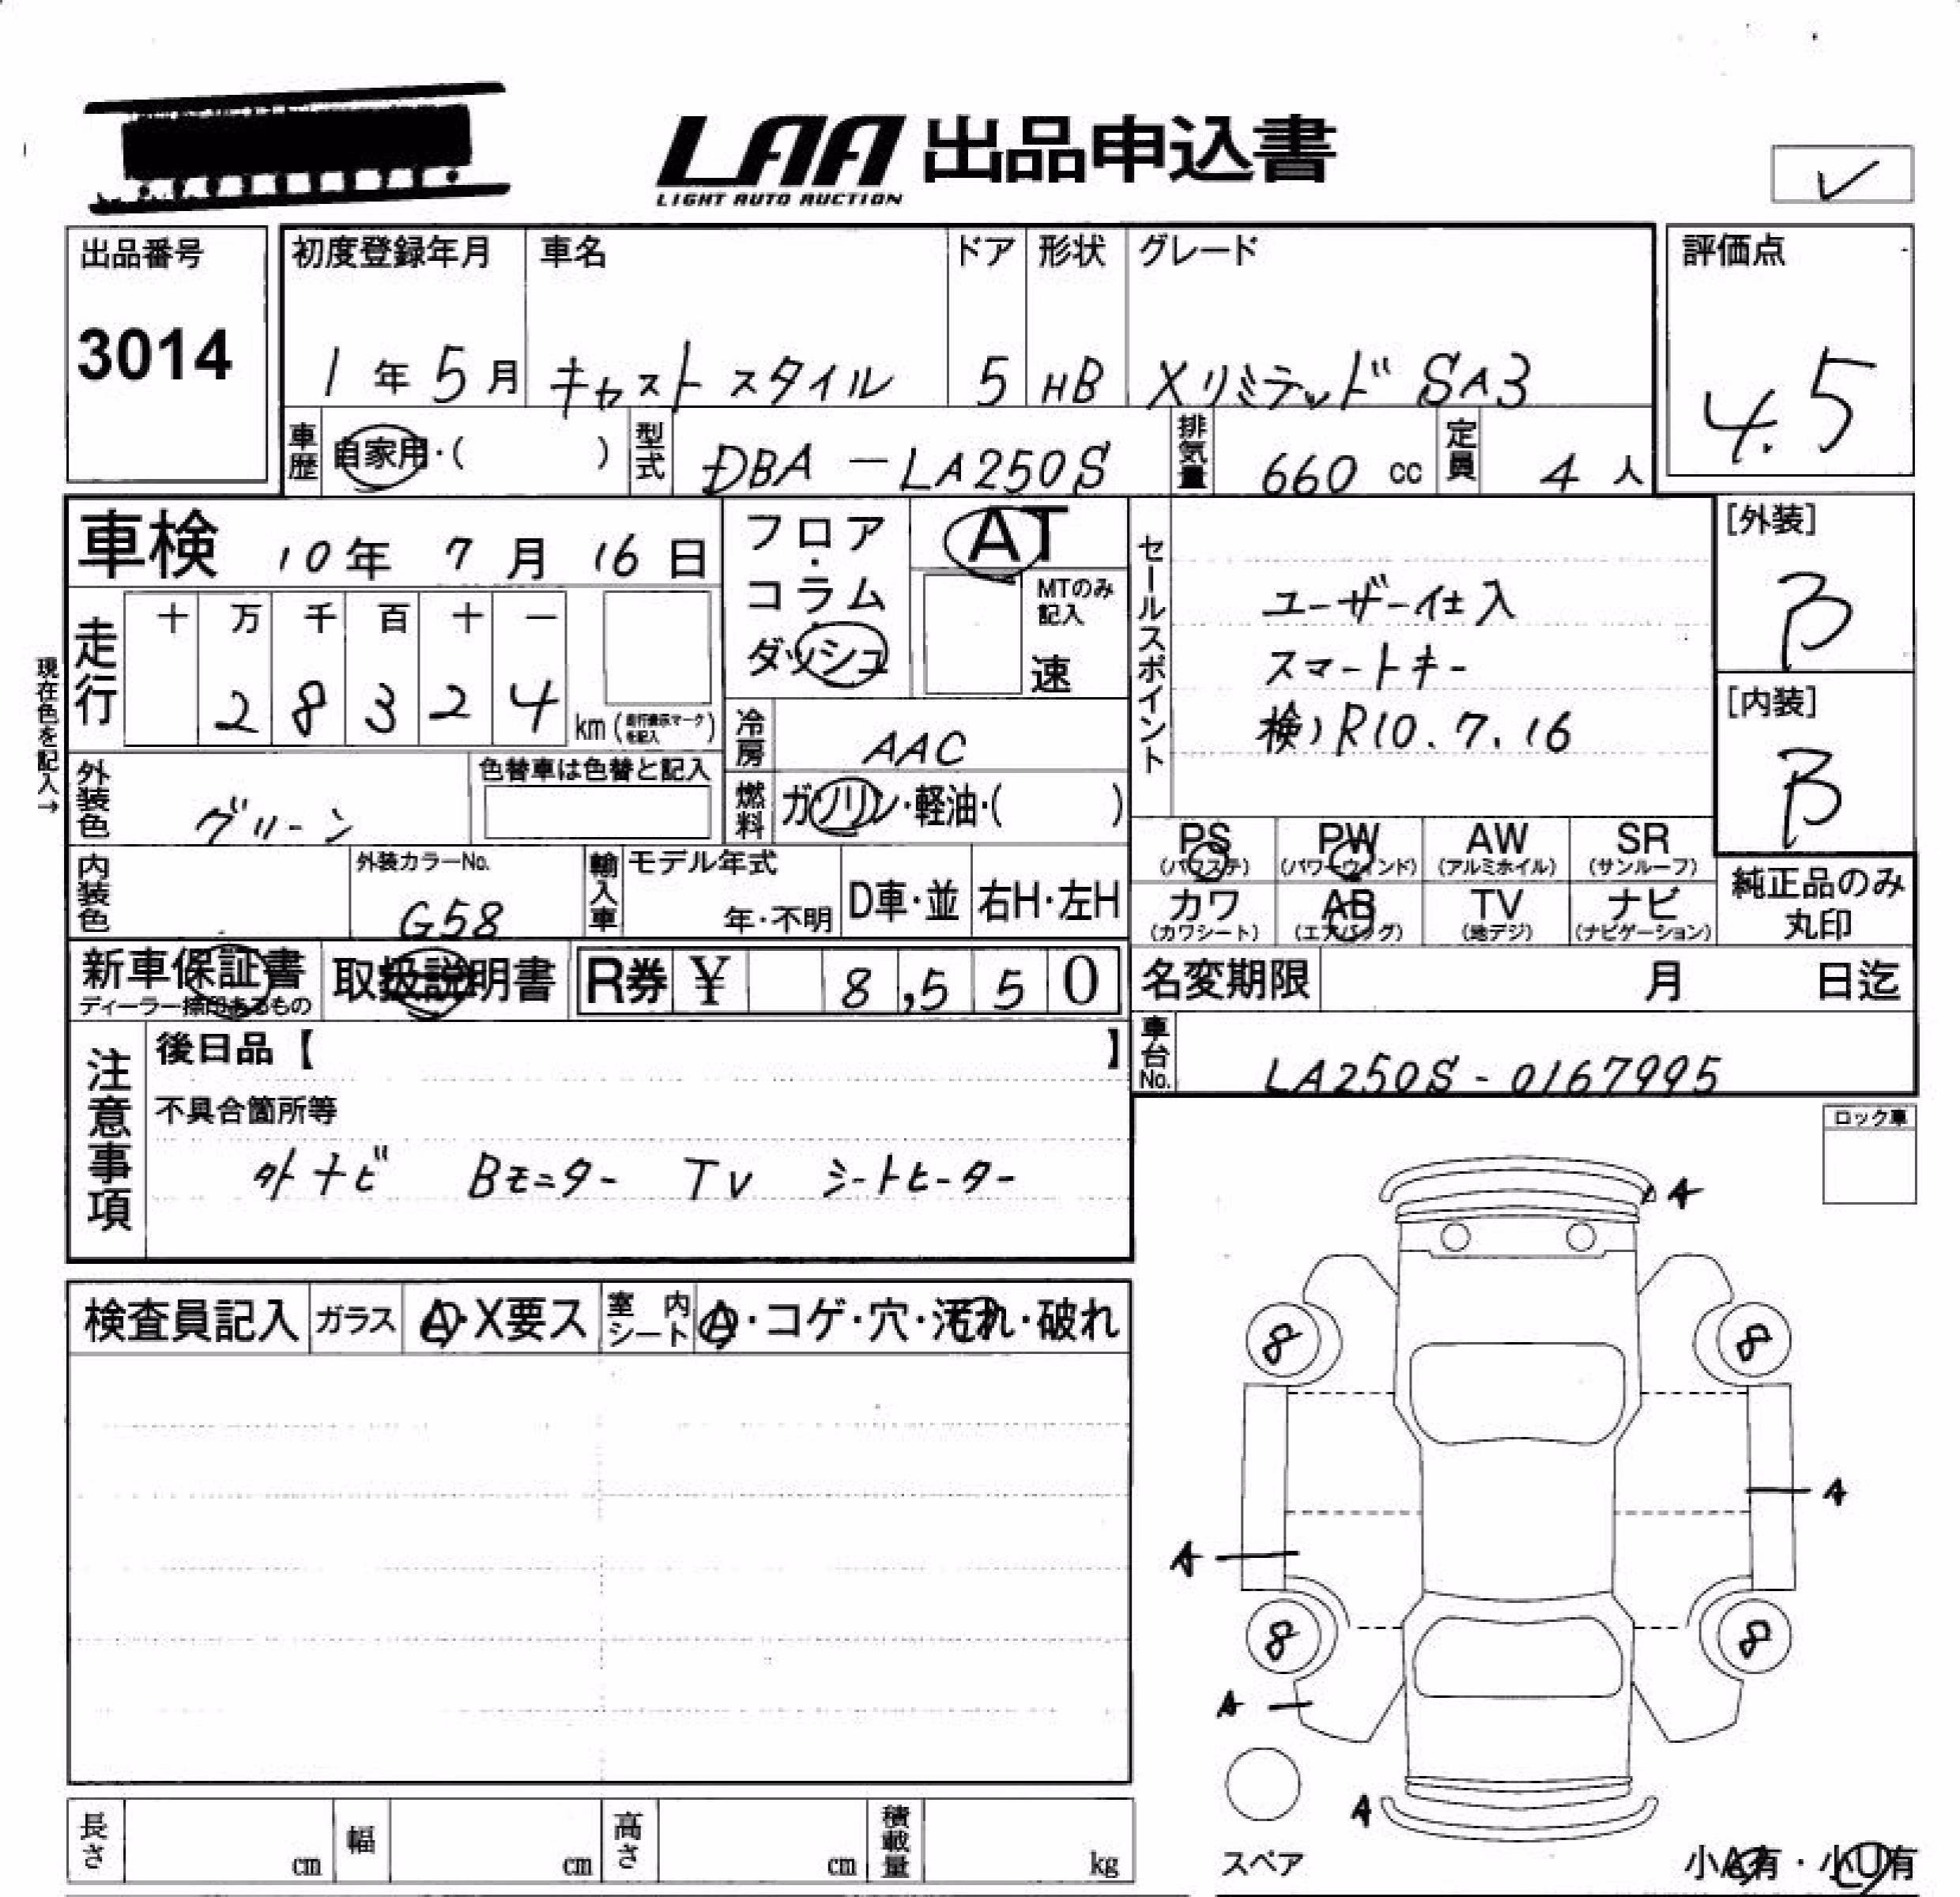 LAA 出品申込書
LIGHT AUTO AUCTION
✓
出品番号
3014
初度登録年月
1年5月
車名
キャスト スタイル
ドア
5
形状
HB
グレード
Xリミテッド SA3
評価点
4.5
車歴
自家用・( )
型式
DBA-LA250S
排気量
660 cc
定員
4人
車検 10年 7月 16日
フロア・コラム・ダッシュ
AT
MTのみ記入
速
セールスポイント
ユーザー仕入
スマートキー
検)R10.7.16
[外装]
B
[内装]
B
現在色を記入→
走行
十 万 千 百 十 一
2 8 3 2 4
km (走行表示マークを記入)
冷房
AAC
外装色
グリーン
色替車は色替と記入
燃料
ガソリン・軽油・( )
PS (パワステ)
PW (パワーウィンド)
AW (アルミホイル)
SR (サンルーフ)
カワ (カワシート)
AB (エアバッグ)
TV (地デジ)
ナビ (ナビゲーション)
純正品のみ丸印
内装色
外装カラーNo.
G58
輸入車
モデル年式
年・不明
D車・並
右H・左H
新車保証書
ディーラー捺印あるもの
取扱説明書
R券 ¥ 8,550
名変期限 月 日迄
車台No.
LA250S-0167995
注意事項
後日品【 】
不具合箇所等
外ナビ Bモニター TV シートヒーター
ロック車
検査員記入
ガラス
A・X要ス
室内シート
A・コゲ・穴・汚れ・破れ
A
8
8
A
A
8
8
A
A
スペア
小A有・小U有
長さ cm
幅 cm
高さ cm
積載量 kg